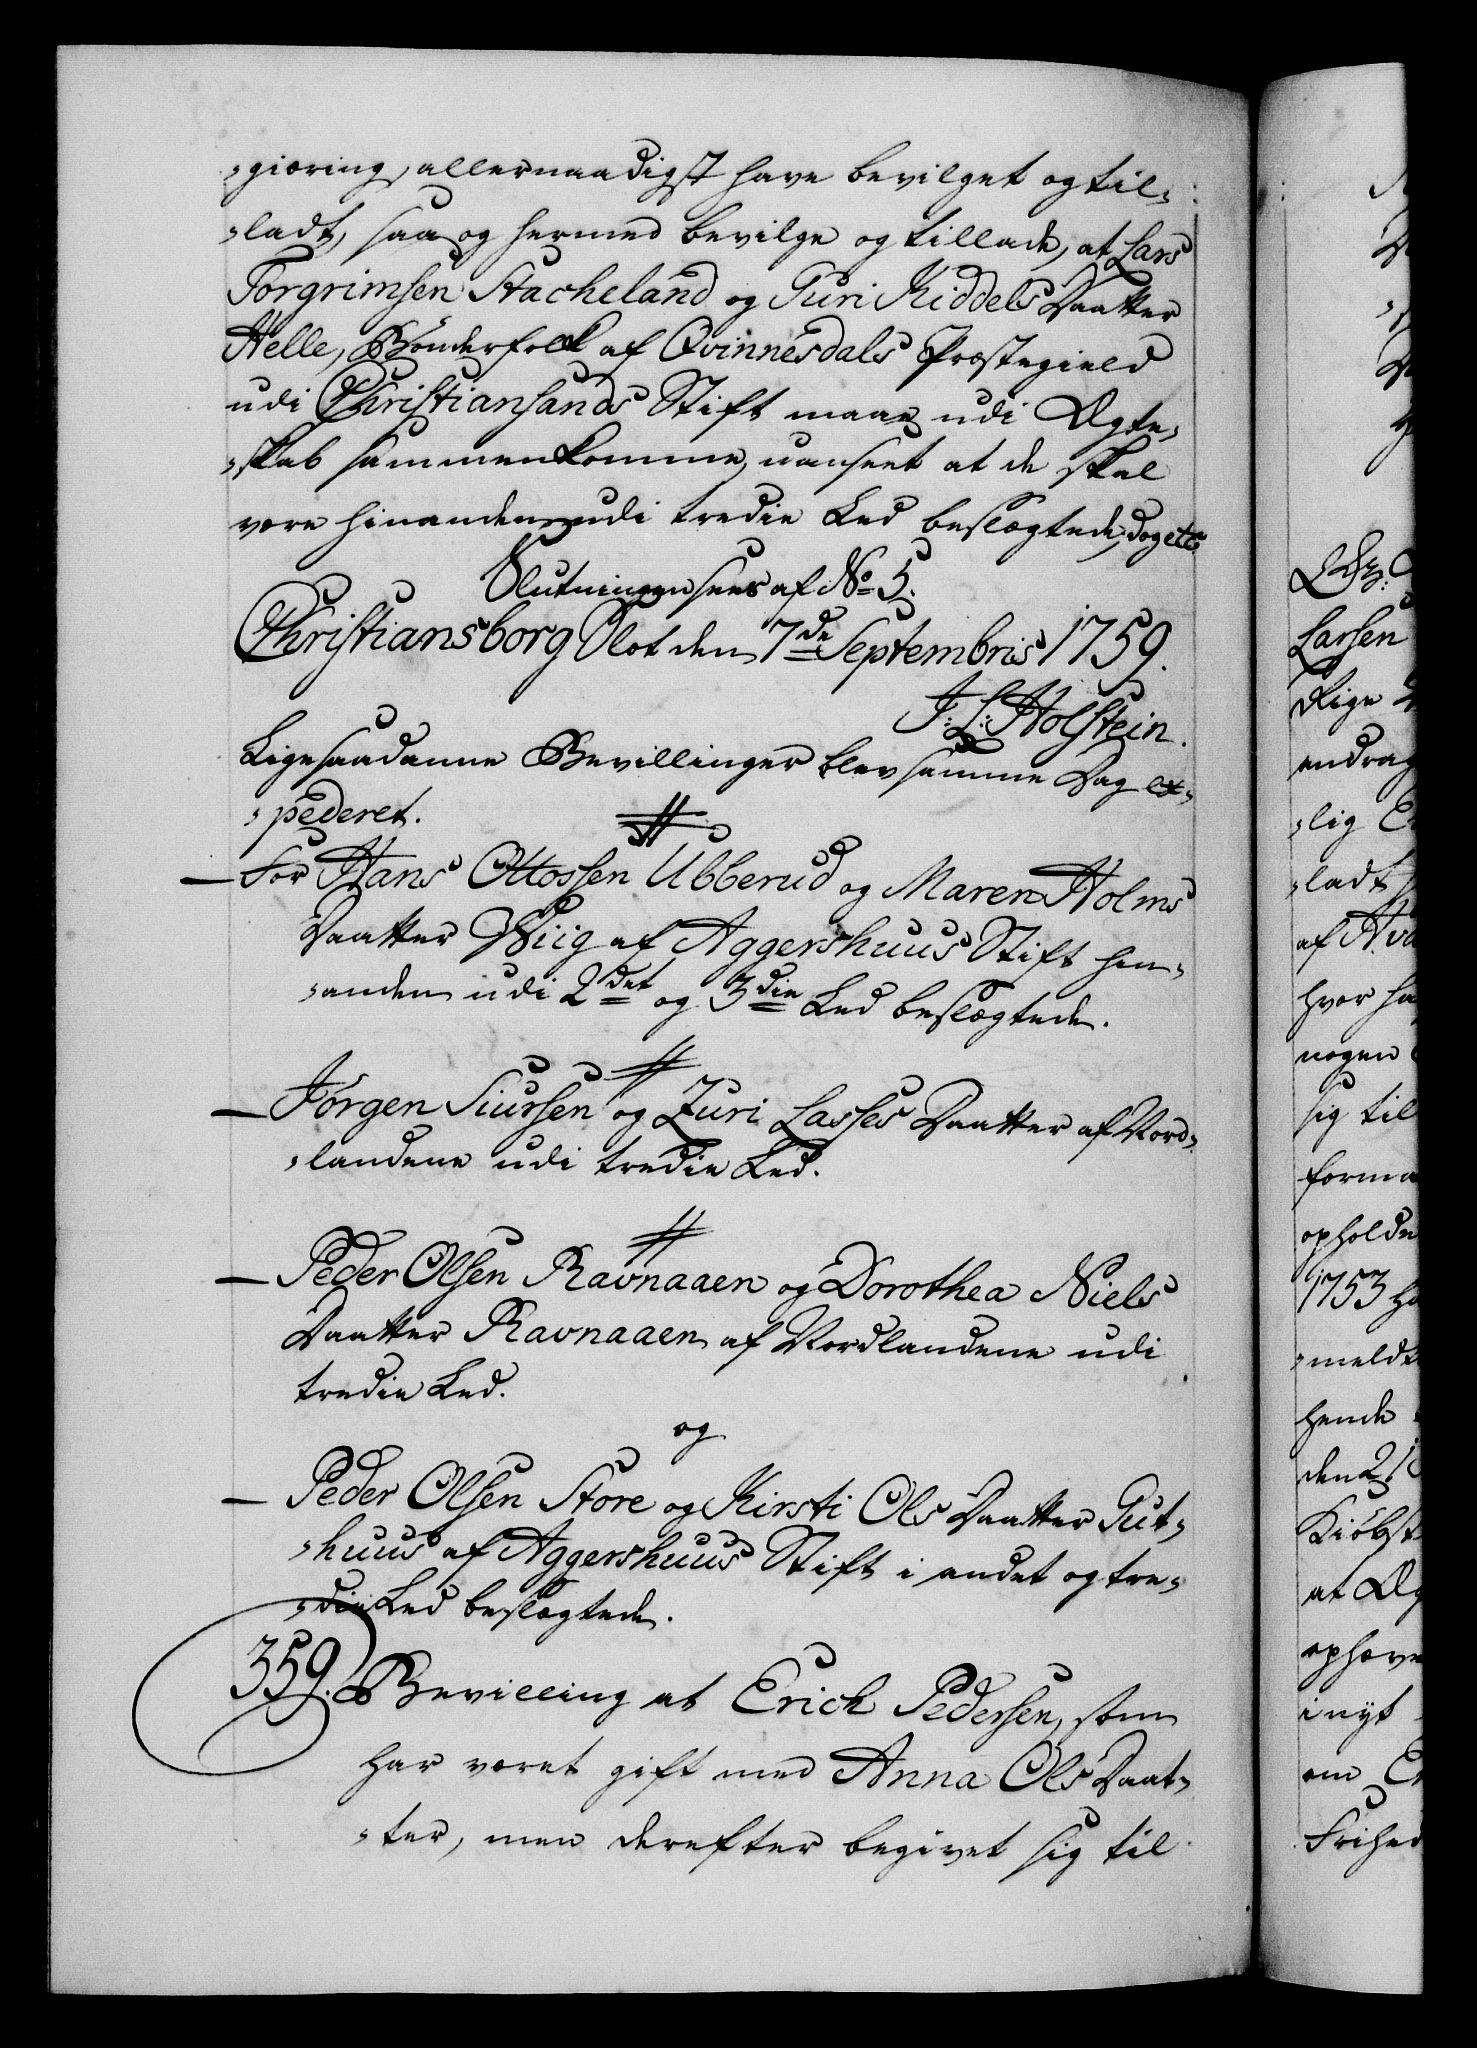 -giøring, allernaadigst have bevilget og til-
-ladt, saa og hermed bevilge og tillade, at Lars
Torgrimsen Stacheland og Turi Kiddels Daatter
Helle, Bønderfolk af Qvinnesdals Præstegield
udi Christiansands Stift maae udi Ægte-
-skab sammenkomme, uanseet at de skal
være hinanden udi tredie Led beslægtede, dog etc
Slutningen sees af No 5.
Christiansborg Slot den 7de Septembris 1759.
J: L: Holstein.
Ligesaadanne Bevillinger blev samme Dag ex-
-pederet.
For Hans Ottossen Ubberud og Maren Holms
Daatter Wiig af Aggershuus Stift hin-
-anden udi 2det og 3die Led beslægtede.
Jørgen Siursen og Zuri Lasses Daatter af Nord-
-landene udi tredie Led.
Peder Olsen Ravnaaen og Dorothea Niels
Daatter Ravnaaen af Nordlandene udi
tredie Led.
og
Peder Olsen Støre og Kirsti Ols Daatter Gut-
-huus af Aggershuus Stift i andet og tre-
-die Led beslægtede.
359. Bevilling at Erich Pedersen, som
har været gift med Anna Ols Daat-
-ter, men derefter begivet sig til
Larsen
Rige
andrag
-lig
-ladt
af
hvor
nogen
sig til
forma
opholde
1753
-meldt
hende
den 21
Kiøbst
at Æg
ophæve
i nyt
om
Frihed